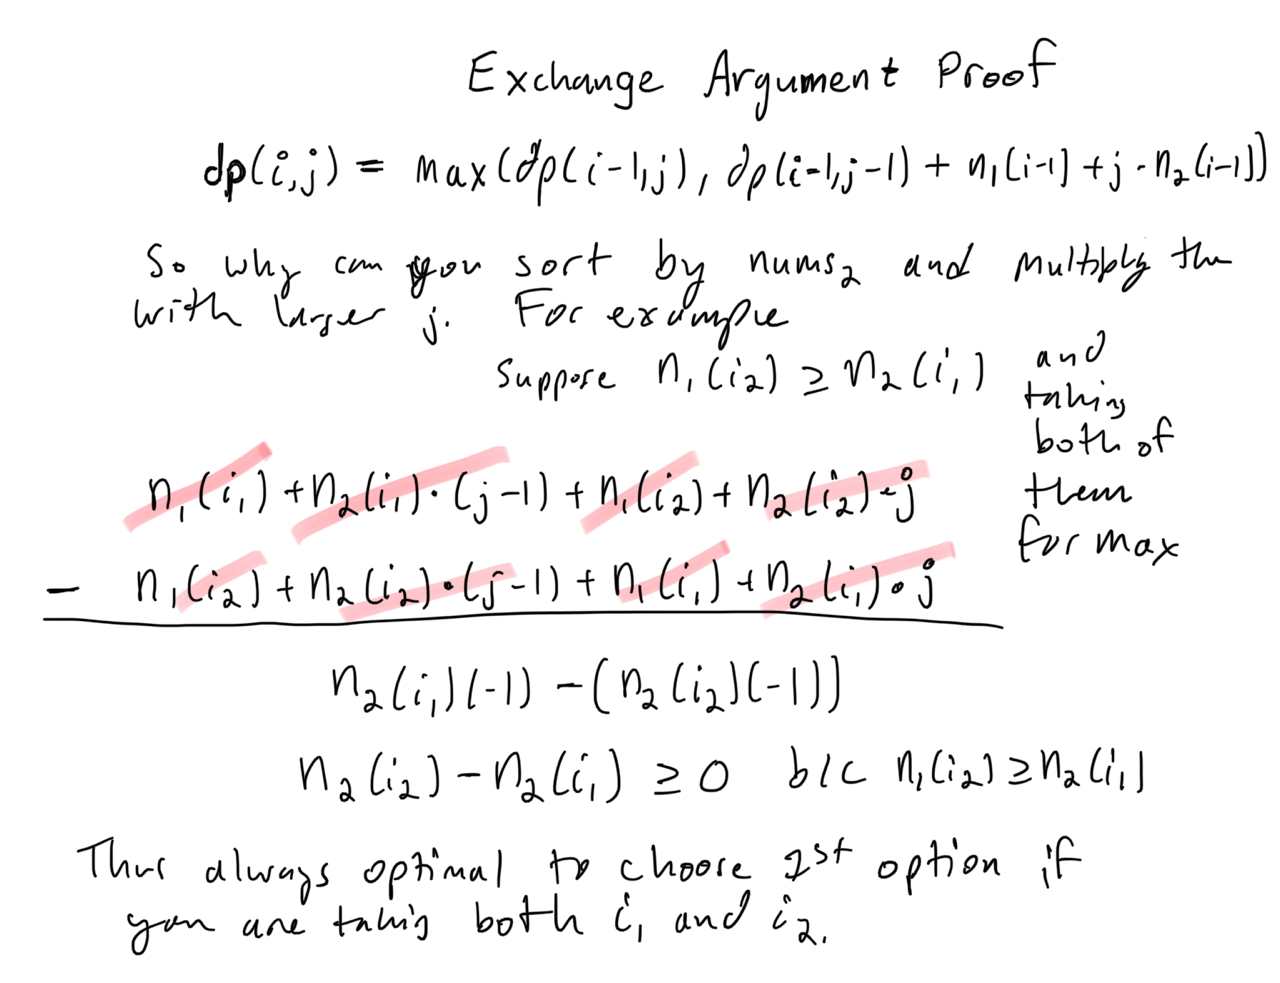 Exchange Argument Proof
dp(i,j) = max(dp(i-1,j), dp(i-1,j-1) + n₁(i-1] + j · n₂(i-1])
So why can you sort by nums₂ and multiply the
with larger j. For example
Suppose n₁(i₂) ≥ n₂(i₁)
and
taking
both of
them
for max
n₁(i₁) + n₂(i₁)·(j-1) + n₁(i₂) + n₂(i₂)·j
- n₁(i₂) + n₂(i₂)·(j-1) + n₁(i₁) + n₂(i₁)·j
n₂(i₁)(-1) - (n₂(i₂)(-1))
n₂(i₂) - n₂(i₁) ≥ 0 b/c n₁(i₂) ≥ n₂(i₁)
Thus always optimal to choose 1st option if
you are taking both i₁ and i₂.